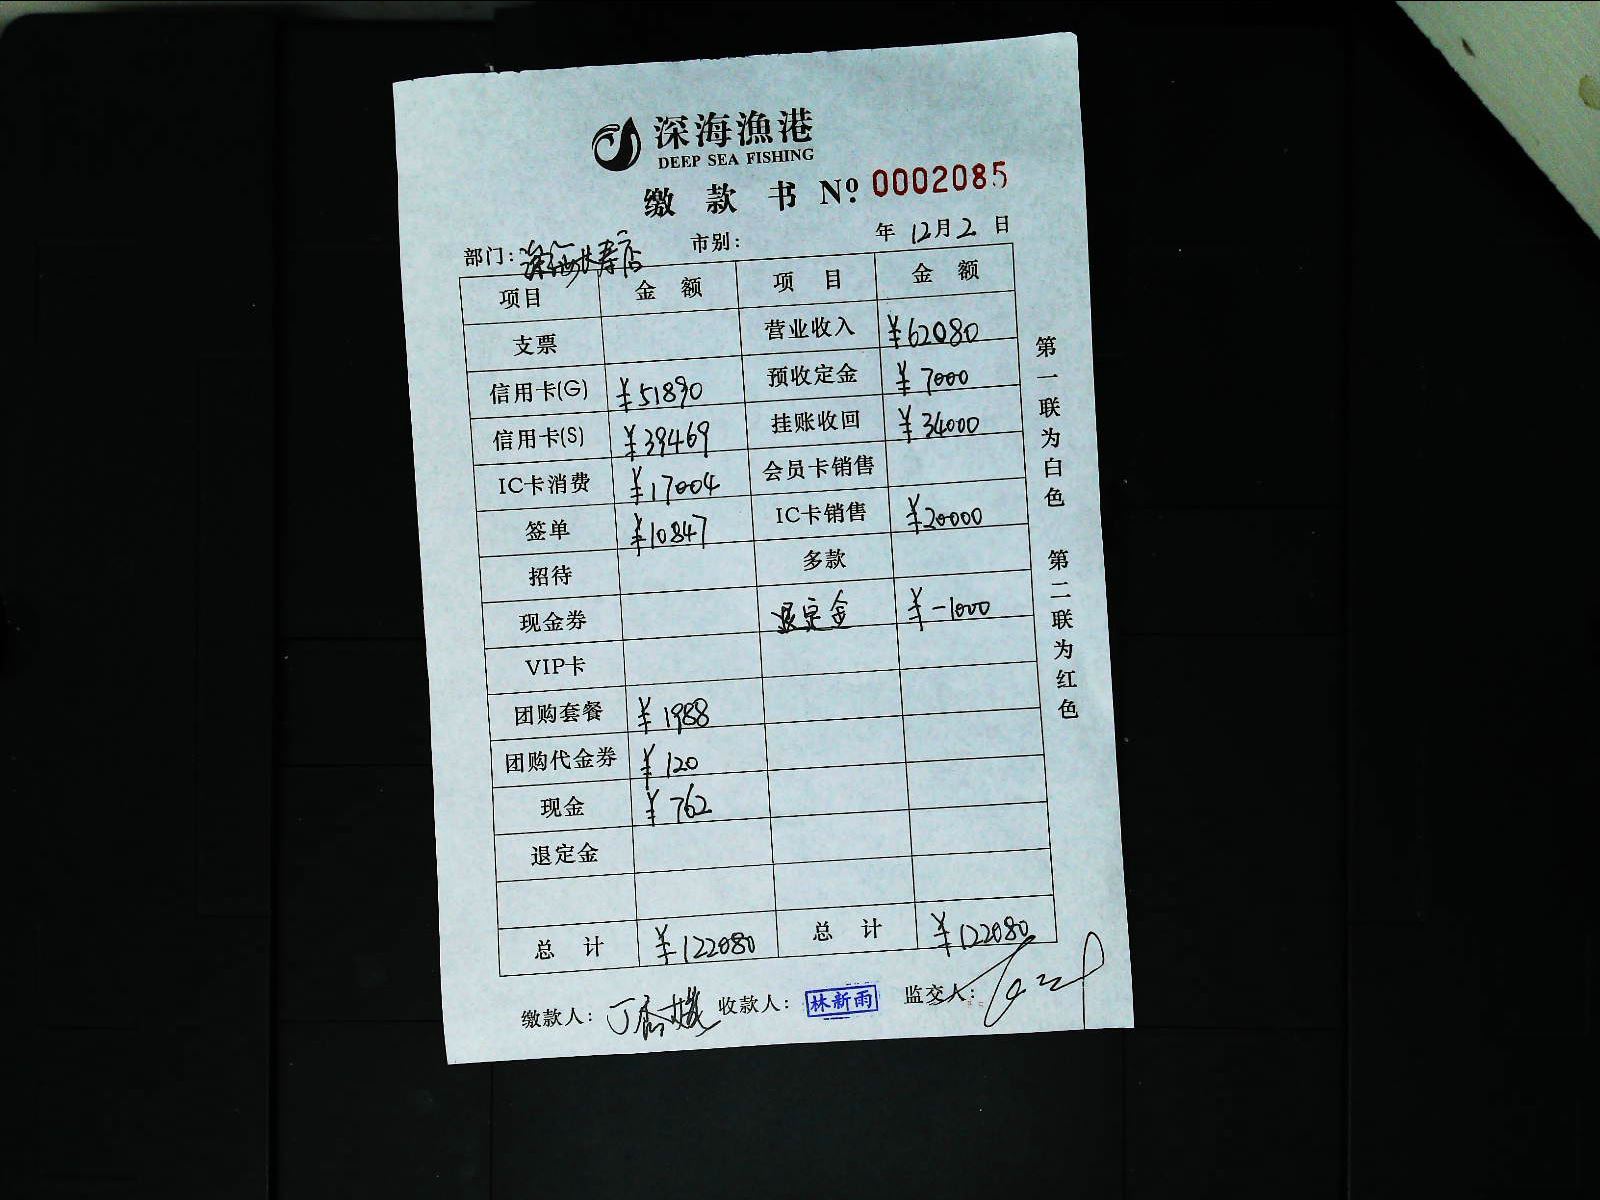 深海漁港
DEEP SEA FISHING
缴款书 Nº: 0002085
部门: 深海长寿店 市别: 年 12月2日
项目 金额 项目 金额
支票 营业收入 ¥62080
信用卡(G) ¥51890 预收定金 ¥7000
信用卡(S) ¥39469 挂账收回 ¥34000
IC卡消费 ¥17004 会员卡销售
签单 ¥10847 IC卡销售 ¥20000
招待 多款
现金券 退定金 ¥-1000
VIP卡
团购套餐 ¥1988
团购代金券 ¥120
现金 ¥762
退定金
总计 ¥122080 总计 ¥122080
缴款人: 收款人: 林新雨 监交人:
第一联为白色 第二联为红色